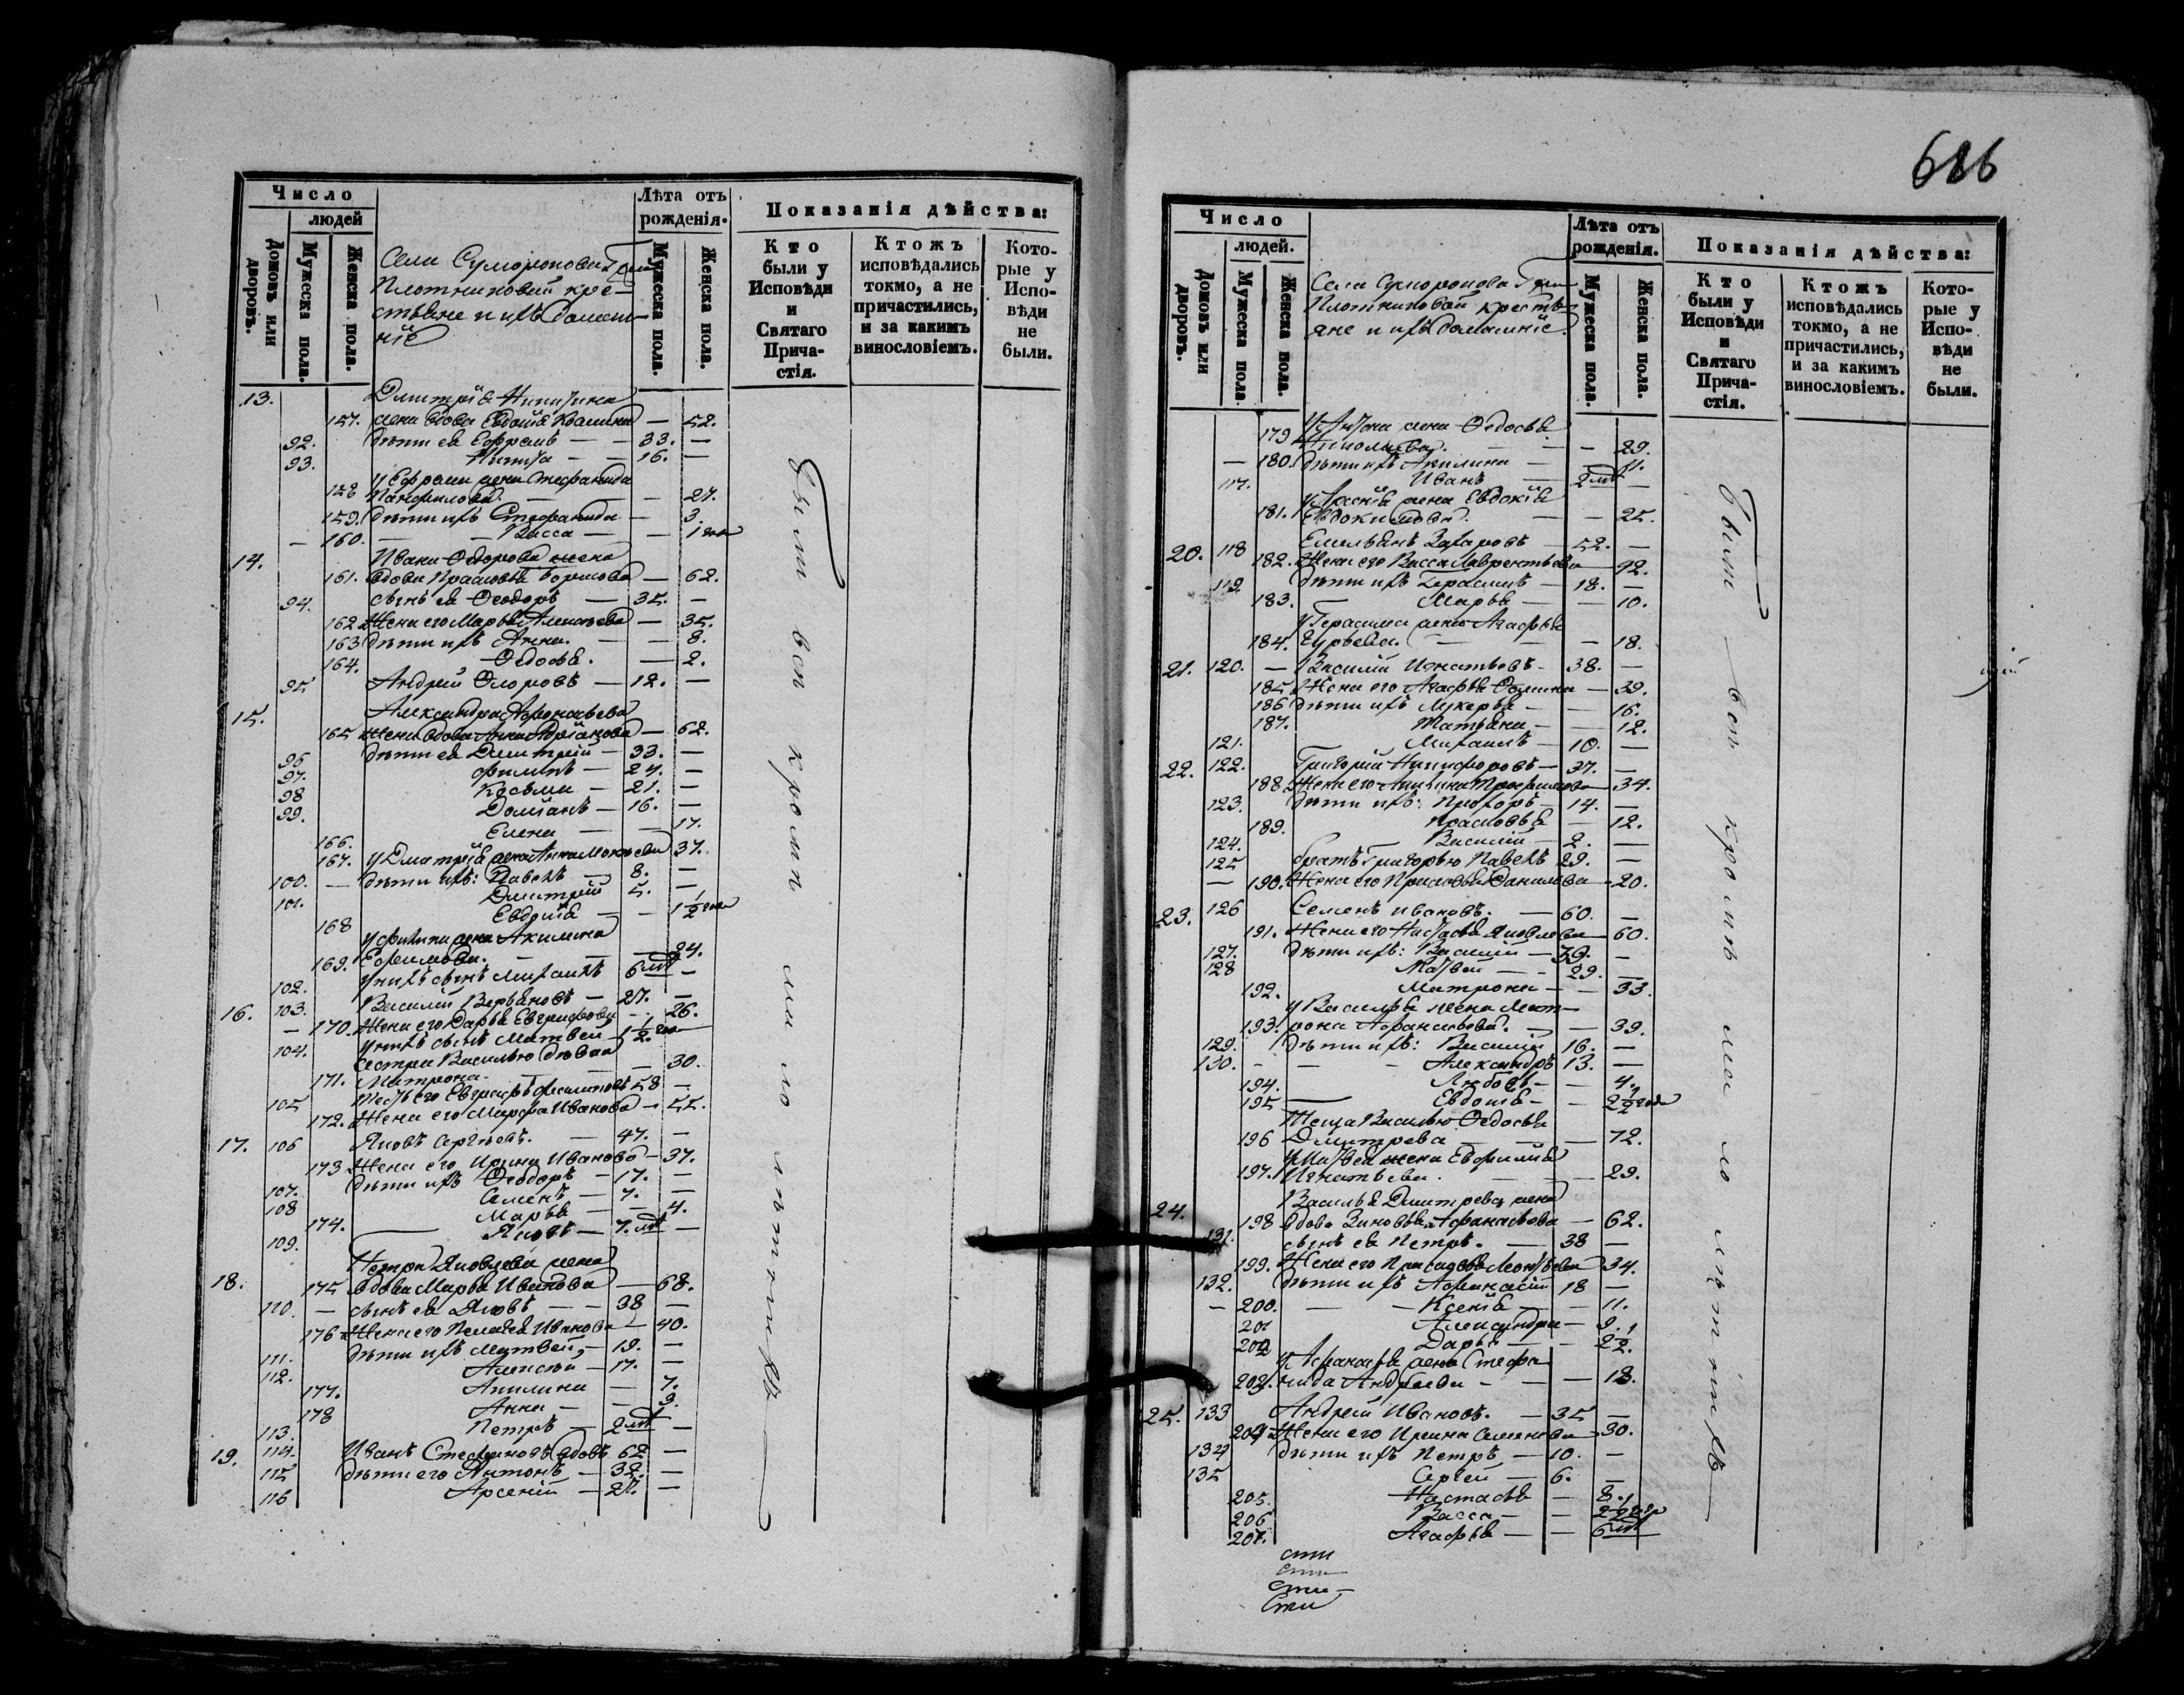 Число
людей
Домовъ или дворовъ.
Мужеска пола.
Женска пола.
Села Суморокова Гжи
Плотниковой кре-
стьяне и ихъ домаш-
ніе
Лѣта отъ
рожденія.
Мужеска пола.
Женска пола.
Показанія дѣйства:
Кто
были у
Исповѣди
и
Святаго
Прича-
стія.
Ктожъ
исповѣдались
токмо, а не
причастились,
и за какимъ
винословіемъ.
Кото-
рые у
Испо-
вѣди
не
были.
13. Дмитрія Никитина
157. жена вдова Евдокія — 52.
92. дѣти ея Ефремъ — — 33. —
93. Никита — — 16. —
у Ефрема жена Стефанида
158 Панфилова. — — — 27.
159. дѣти ихъ Стефанида — 3.
— 160. — — Васса — — 1 года
14. Ивана Ѳедорова жена
161. вдова Прасковья Борисова — 62.
94. сынъ ея Ѳеодоръ — 35. —
162 Жена его Марья Алексѣева — 35.
163 дѣти ихъ Анна. — — 8.
164. Ѳедосья. — 2.
95 Андрей — 12. —
15. Александра Афонасьева
165 жена вдова Анна Адріанова — 62.
дѣти ея Дмитрій — 33. —
96
97. Филипъ — 24. —
98 Косьма — 21. —
99. Доміанъ — 16. —
166. Елена — — 17.
167. у Дмитрія жена Анна 37.
100. — дѣти ихъ: Павелъ — 8. —
101. Дмитрій 5. —
168 Евдокія — — 1 1/2 года
у Филипа жена Акилина
169. Ефимова. — — — 24.
102. у нихъ сынъ Михаилъ 6 мѣ —
16. 103. Василій — 27. —
— 170. Жена его Дарья Евграфова — 26.
104. у нихъ сынъ Матвей — 1 1/2 года
сестра Василью дѣвка
171. Матрона. — — 30.
105 Тесть его Евграфъ Филиповъ 58 —
172. Жена его Марфа Иванова — 55.
17. 106 Яковъ Сергѣевъ. — 47. —
173 Жена его Ирина Иванова — 37.
107. дѣти ихъ Ѳеодоръ — 17. —
108 Семенъ — 7. —
174. Марья — — 4.
109. Яковъ — 7. мѣ —
Петра Яковлева жена
18. 175 вдова Марфа Иванова — 68.
110. — сынъ ея Яковъ — — 38 —
176 Жена его Пелагея Иванова — 40.
111. дѣти ихъ Матвей, — 19. —
112. Алексѣй — 17. —
177. Акилина — 7.
178 Анна — — 3.
113. Петръ — 2 мѣ —
19. 114. Иванъ Стефановъ вдовъ 62 —
115 дѣти его Антонъ — 32. —
116 Арсеній — 27. —
Были вси кроме малолѣтнихъ
686
Число
людей.
Домовъ или дворовъ.
Мужеска пола.
Женска пола.
Села Суморокова Гжи
Плотниковой кресть-
яне и ихъ домашніе.
Лѣта отъ
рожденія.
Мужеска пола.
Женска пола.
Показанія дѣйства:
Кто
были у
Исповѣди
и
Святаго
Прича-
стія.
Ктожъ
исповѣдались
токмо, а не
причастились,
и за какимъ
винословіемъ.
Кото-
рые у
Испо-
вѣди
не
были.
у Антона жена Ѳедосья
179 Николаева. — — — 29.
— 180. дѣти ихъ Акилина — 11.
117. Иванъ — 2 мѣ —
у Арсенія жена Евдокія
181. Евдокимова. — — 25.
20. 118 Емельянъ Захаровъ — 52. —
182. Жена его Васса Лаврентьева — 42.
119 дѣти ихъ Герасимъ — 18. —
183. — Марья — — 10.
у Герасима жена Агафья
184. Гурьева. — — — 18.
21. 120. — Василій Игнатьевъ — 38. —
185 Жена его Агафья Фомина — 39.
186 дѣти ихъ Лукерья — — 16.
187. Татьяна — — 12.
121. Михаилъ — 10. —
22. 122. Григорій Никифоровъ — 37. —
188 Жена его — 34.
123. дѣти ихъ: Прохоръ — 14. —
189. Прасковья — 12.
124. Василій — 2. —
125 братъ Григорью Павелъ 29. —
— 190. Жена его Прасковья Данилова — 20.
23. 126 Семенъ Ивановъ. — 60. —
191. Жена его Настасья Яковлева — 60.
127. дѣти ихъ: Василій — 39. —
128 Матвей — — 29. —
192. Матрона — — 33.
у Василья жена Мат-
193. рона Афанасьева. — — 39.
129. дѣти ихъ: Василій 16. —
130. — — — Александръ 13. —
194. Любовь — — 4.
195 — Евдокія — — 2 1/2 года
Теща Василью Ѳедосья
196 Дмитрева — — — 72.
у Матвея жена Евфимія
197. Игнатьева. — — — 29.
Василья Дмитрева жена
24. 198 вдова Зиновья Афанасьева — 62.
131. сынъ ея Петръ. — 38 —
199. Жена его Прасковья Леонтьева 34.
132. дѣти ихъ Афанасій 18 —
— 200. — — Ксенія — — 11.
201 Александра — 9.
202 Дарья — — 2 1/2.
у Афанасья жена Стефа-
203. нида Андреева — — — 18.
25. 133 Андрей Ивановъ. — 35 —
204 Жена его Ирина Семенова — 30.
134 дѣти ихъ Петръ — 10. —
135 Сергей — 6. —
205. Настасья — 8.
206 Васса — — 2 1/2 года
207. Агафья — — 6 мѣ
Были вси кроме малолѣтнихъ